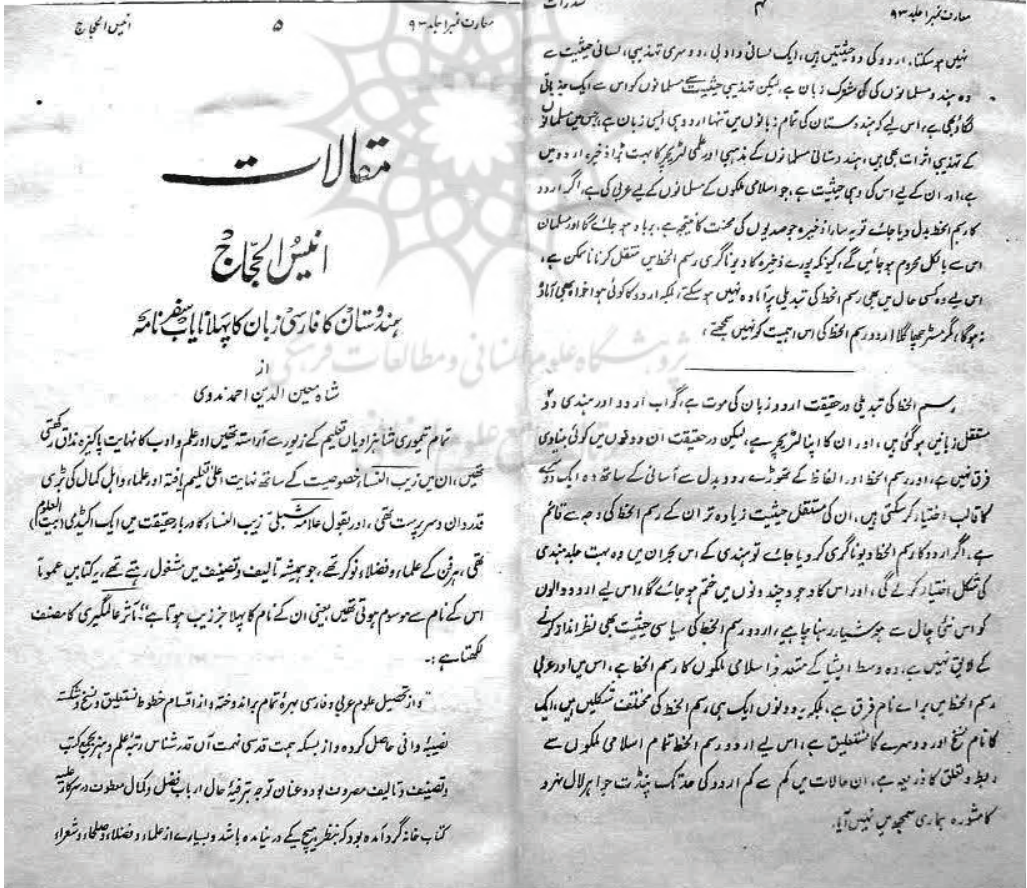 معارف نمبر ۱ جلد ۹۳
۴
شذرات
نہیں ہو سکتا، اردو کی دو حیثیتیں ہیں، ایک لسانی و ادبی، دوسری تہذیبی، لسانی حیثیت سے
وہ ہندو مسلمانوں کی کی مشترک زبان ہے، لیکن تہذیبی حیثیت سے مسلمانوں کو اس سے ایک جذباتی
لگاؤ بھی ہے، اس لیے کہ ہندوستان کی تمام زبانوں میں تنہا اردو ہی ایسی زبان ہے، جس میں مسلمانوں
کے تہذیبی اثرات بھی ہیں، ہندوستانی مسلمانوں کے مذہبی اور علمی لٹریچر کا بہت بڑا ذخیرہ اردو میں
ہے، اور ان کے لیے اس کی وہی حیثیت ہے، جو اسلامی ملکوں کے مسلمانوں کے لیے عربی کی ہے، اگر اردو
کا رسم الخط بدل دیا جائے تو یہ سارا ذخیرہ جو صدیوں کی محنت کا نتیجہ ہے، برباد ہو جائے گا اور مسلمان
اس سے بالکل محروم ہو جائیں گے، کیونکہ پورے ذخیرہ کا دیوناگری رسم الخط میں منتقل کرنا ناممکن ہے،
اس لیے وہ کسی حال میں بھی رسم الخط کی تبدیلی پر آمادہ نہیں ہو سکتے، بلکہ اردو کا کوئی ہوا خواہ بھی آمادہ
نہ ہوگا، مگر مسٹر چھاگلا اردو رسم الخط کی اس اہمیت کو نہیں سمجھتے،
رسم الخط کی تبدیلی درحقیقت اردو زبان کی موت ہے، گو اب اردو اور ہندی دو
مستقل زبانیں ہو گئی ہیں، اور ان کا اپنا لٹریچر ہے، لیکن درحقیقت ان دونوں میں کوئی بنیادی
فرق نہیں ہے، اور رسم الخط اور الفاظ کے تھوڑے ردوبدل سے آسانی کے ساتھ وہ ایک دوسرے
کا قالب اختیار کر سکتی ہیں، ان کی مستقل حیثیت زیادہ تر ان کے رسم الخط کی وجہ سے قائم
ہے، اگر اردو کا رسم الخط دیوناگری کر دیا جائے تو ہندی کے اس بحران میں وہ بہت جلد ہندی
کی شکل اختیار کر لے گی، اور اس کا وجود چند دنوں میں ختم ہو جائے گا، اس لیے اردو والوں
کو اس نئی چال سے ہوشیار رہنا چاہیے، اردو رسم الخط کی سیاسی حیثیت بھی نظر انداز کرنے
کے لایق نہیں ہے، وہ وسط ایشیا کے متعدد اسلامی ملکوں کا رسم الخط ہے، اس میں اور عربی
رسم الخط میں برائے نام فرق ہے، بلکہ یہ دونوں ایک ہی رسم الخط کی مختلف شکلیں ہیں، ایک
کا نام نسخ اور دوسرے کا نستعلیق ہے، اس لیے اردو رسم الخط تمام اسلامی ملکوں سے
ربط و تعلق کا ذریعہ ہے، ان حالات میں کم سے کم اردو کی حد تک پنڈت جواہر لال نہرو
کا مشورہ ہماری سمجھ میں نہیں آیا،
معارف نمبر ۱ جلد ۹۳
۵
انیس الحجاج
مقالات
انیسُ الحجّاج
ہندوستان کا فارسی زبان کا پہلا نایاب سفرنامہ
از
شاہ معین الدین احمد ندوی
تمام تیموری شاہزادیاں تعلیم کے زیور سے آراستہ تھیں، اور علم و ادب کا نہایت پاکیزہ مذاق رکھتی
تھیں، ان میں زیب النساء خصوصیت کے ساتھ نہایت اعلیٰ تعلیم یافتہ اور علماء و اہل کمال کی بڑی
قدردان و سرپرست تھی، اور بقول علامہ شبلی زیب النساء کا دربار حقیقت میں ایک اکیڈمی (بیت العلوم)
تھی، ہر فن کے علماء و فضلاء نوکر تھے، جو ہمیشہ تالیف و تصنیف میں مشغول رہتے تھے، یہ کتابیں عموماً
اس کے نام سے موسوم ہوتی تھیں، یعنی ان کے نام کا پہلا جز زیب ہوتا ہے، "مآثر عالمگیری کا مصنف
لکھتا ہے:۔
"و از تحصیل علوم عربی و فارسی بہرۂ تمام براندوختہ و از اقسام خطوط نستعلیق و نسخ و شکستہ
نصیبۂ وافی حاصل کردہ و از بسکہ ہمت قدسی نہمت آں قدر شناس رتبۂ علم و ہنر بجمع کتب
و تصنیف و تالیف مصروف بود و عنان توجہ بترفیۂ حال ارباب فضل و کمال معطوف در سرکار علیہ
کتاب خانہ گرد آمدہ بود کہ بنظر ہیچ یکے در نیامدہ باشد و بسیارے از علماء و فضلاء و صلحاء و شعراء
پژوهشگاه علوم انسانی و مطالعات فرهنگی